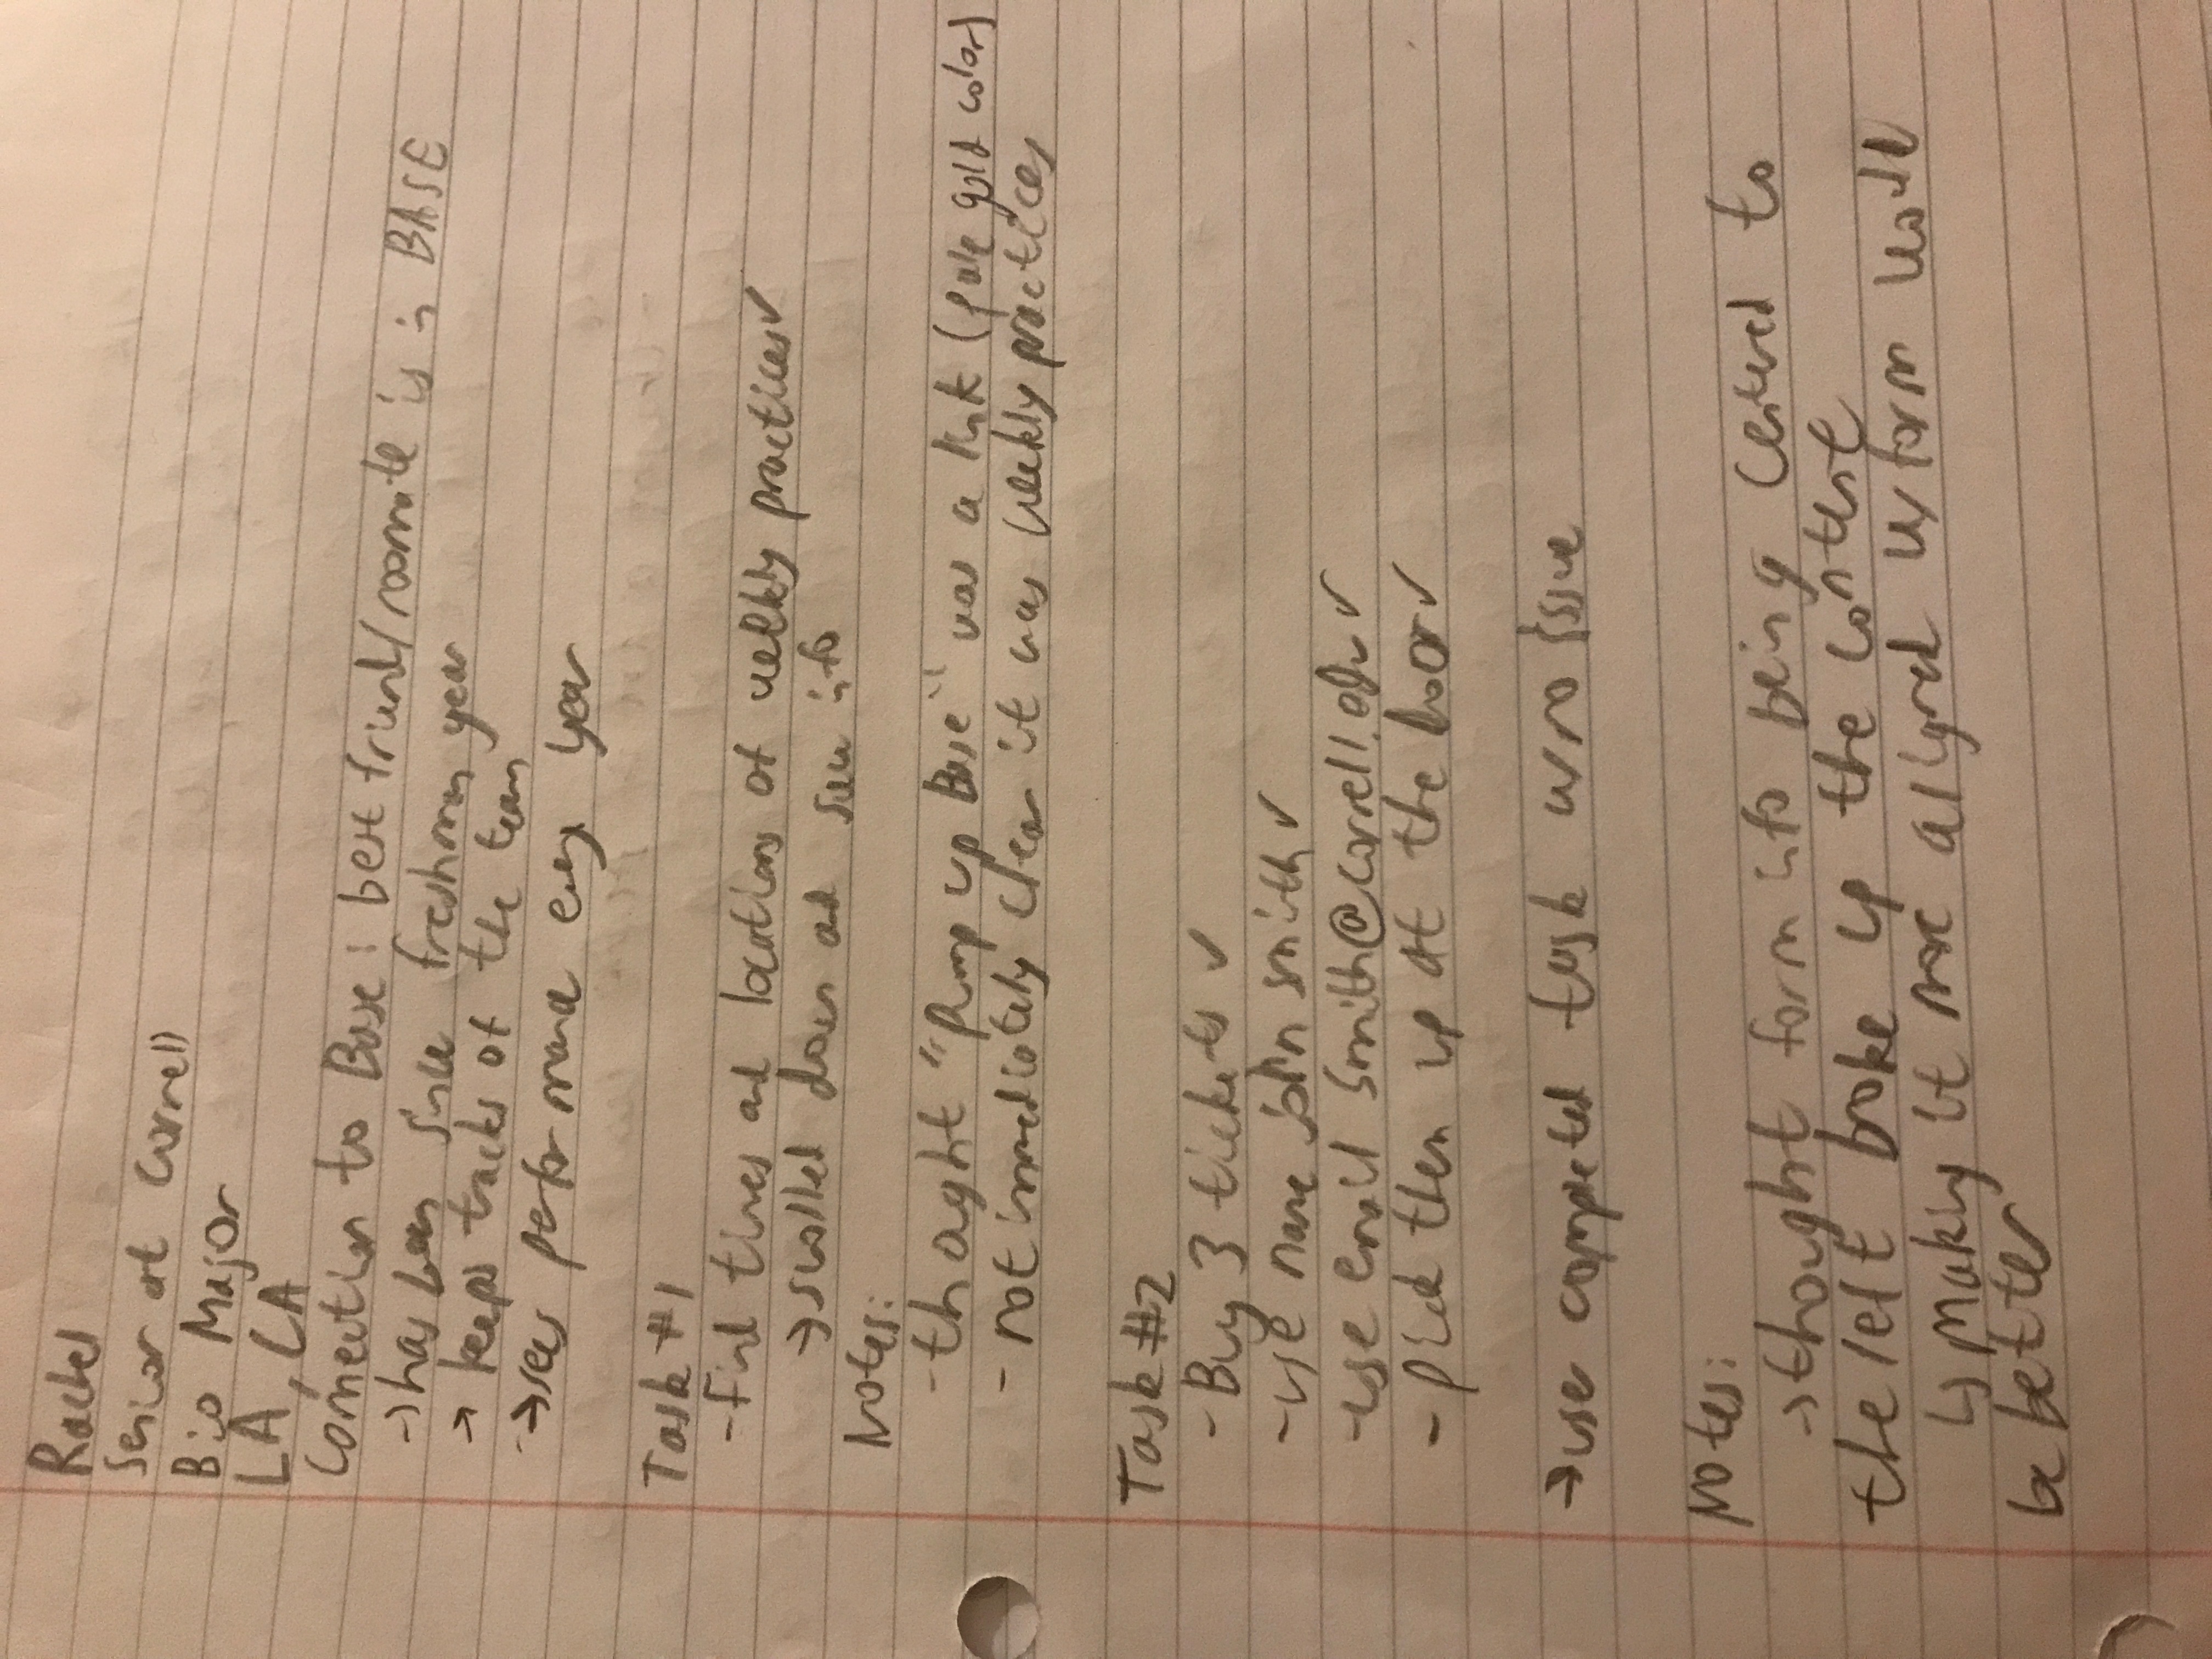 Rachel
Senior at Cornell
Bio Major
LA, CA
Connection to Base: best friend/roomate is in BASE
→ has been since freshman year
→ keeps tracks of the team
→ sees performance every year
Task #1
- Find times and locations of weekly practices ✓
→ scrolled down and saw info
Notes:
- thought "Pump up Base" was a link (pale gold color)
- not immediately clear it was weekly practices
Task #2
- Buy 3 tickets ✓
- use name john smith ✓
- use email smith@cornell.edu ✓
- pick them up at the door ✓
→ user completed task w/ no issue
Notes:
→ thought form info being centered to
the left broke up the content
↳ Making it more aligned w/ form would
be better